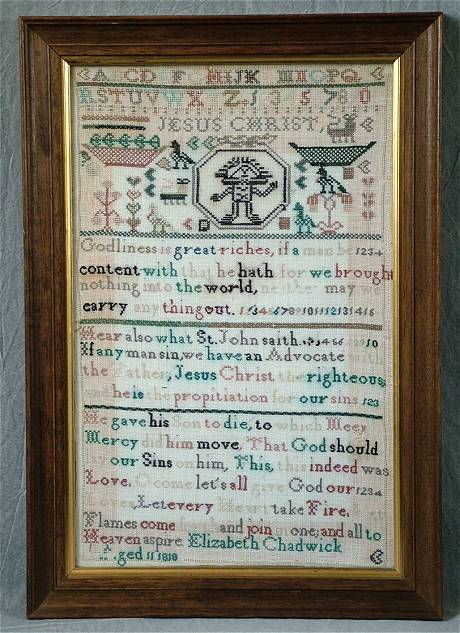 A CD F HIJK MNOPQ
RSTUVWX Z, 1 3 5 78 0
JESUS CHRIST,
Godliness is great riches, if a man be 1234
content with that he hath for we brough
nothing into the world, neither may we
carry any thing out. 1 2 3 4 5 6 7 8 9 10 11 12 13 14 16
Hear also what St. John saith. 10
If any man sin, we have an Advocate with
the Father, Jesus Christ the righteous;
and he is the propitiation for our sins 123
He gave his Son to die, to which
Mercy did him move, That God should
lay our Sins on him, This, this indeed was
Love. O come let's all give God our 1234
Loves, Let every Heart take Fire,
Flames come and join in one; and all to
Heaven aspire Elizabeth Chadwick
Aged 11 1818